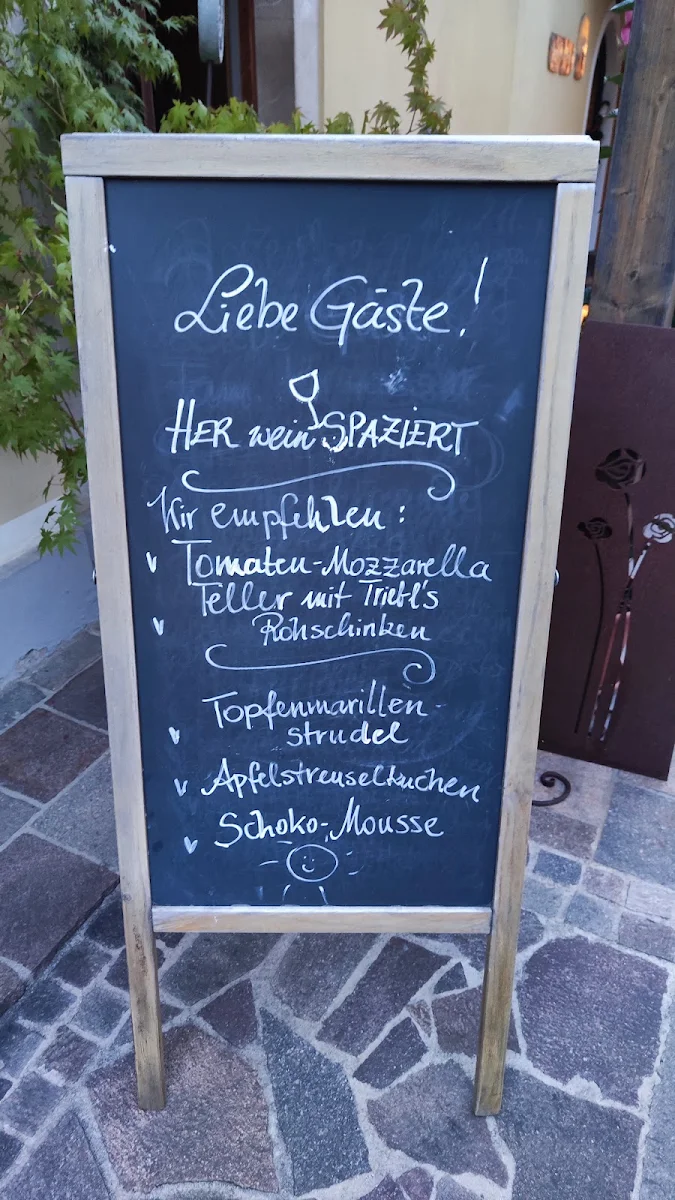 Liebe Gäste!
HER wein SPAZIERT
Wir empfehlen:
Tomaten-Mozzarella
Teller mit Triebl's
Rohschinken
Topfenmarillen-
strudel
Apfelstreuselkuchen
Schoko-Mousse